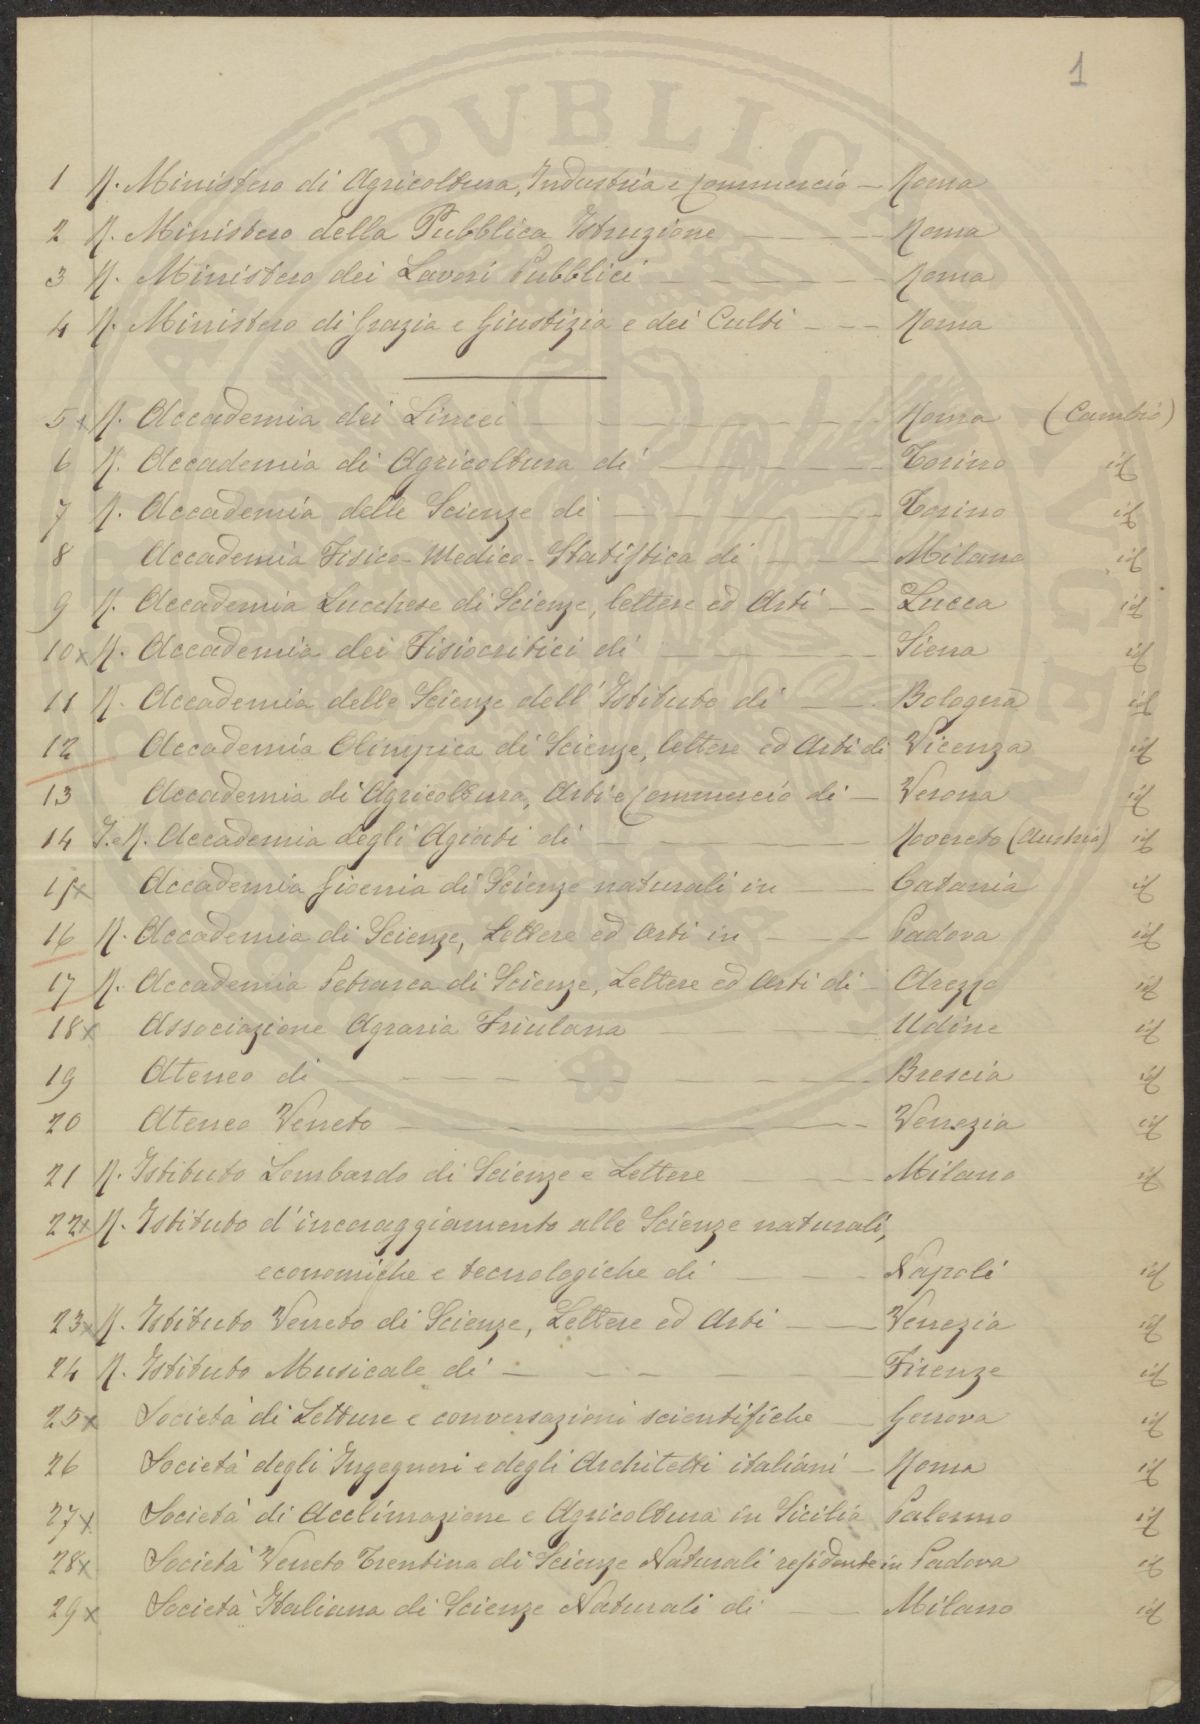 1
1 R. Ministero di Agricoltura, Industria e Commercio — Roma
2 R. Ministero della Pubblica Istruzione — Roma
3 R. Ministero dei Lavori Pubblici — Roma
4 R. Ministero di Grazia e Giustizia e dei Culti — Roma
5 x R. Accademia dei Lincei — Roma (Cambio)
6 R. Accademia di Agricoltura di — Torino id
7 R. Accademia delle Scienze di — Torino id
8 Accademia Fisico-Medico-Statistica di — Milano id
9 R. Accademia Lucchese di Scienze, lettere ed Arti — Lucca id
10 x R. Accademia dei Fisiocritici di — Siena id
11 R. Accademia delle Scienze dell'Istituto di — Bologna id
12 Accademia Olimpica di Scienze, lettere ed Arti di Vicenza id
13 Accademia di Agricoltura, Arti e Commercio di — Verona id
14 I. e R. Accademia degli Agiati di — Rovereto (Austria) id
15 x Accademia Gioenia di Scienze naturali in — Catania id
16 R. Accademia di Scienze, Lettere ed Arti in — Padova id
17 R. Accademia Petrarca di Scienze, Lettere ed Arti di — Arezzo id
18 x Associazione Agraria Friulana — Udine id
19 Ateneo di — Brescia id
20 Ateneo Veneto — Venezia id
21 R. Istituto Lombardo di Scienze e Lettere — Milano id
22 x R. Istituto d'incoraggiamento alle Scienze naturali,
economiche e tecnologiche di — Napoli id
23 x R. Istituto Veneto di Scienze, Lettere ed Arti — Venezia id
24 R. Istituto Musicale di — Firenze id
25 x Società di Letture e conversazioni scientifiche — Genova id
26 Società degli Ingegneri e degli Architetti italiani — Roma id
27 x Società di Acclimazione e Agricoltura in Sicilia Palermo id
28 x Società Veneto Trentina di Scienze Naturali residente in Padova id
29 x Società Italiana di Scienze Naturali di — Milano id